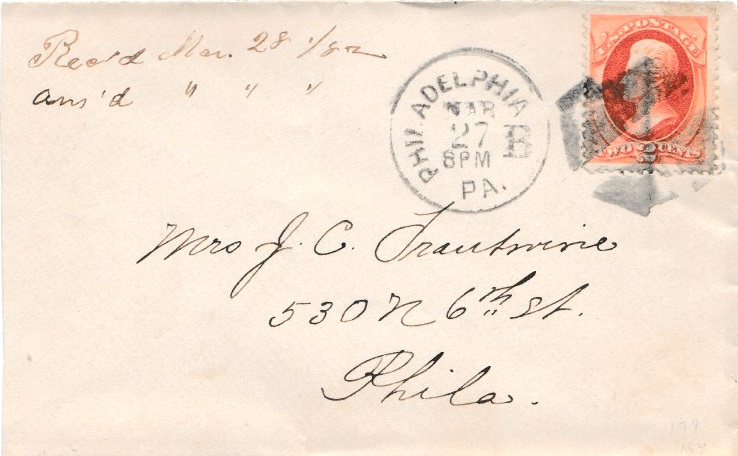 Rec'd Mar. 28 1/82
ans'd " " "
PHILADELPHIA
MAR
27 B
8PM
PA.
U.S. POSTAGE
TWO 2 CENTS
Mrs J. C. Trautwine
530 N 6th St.
Phila.